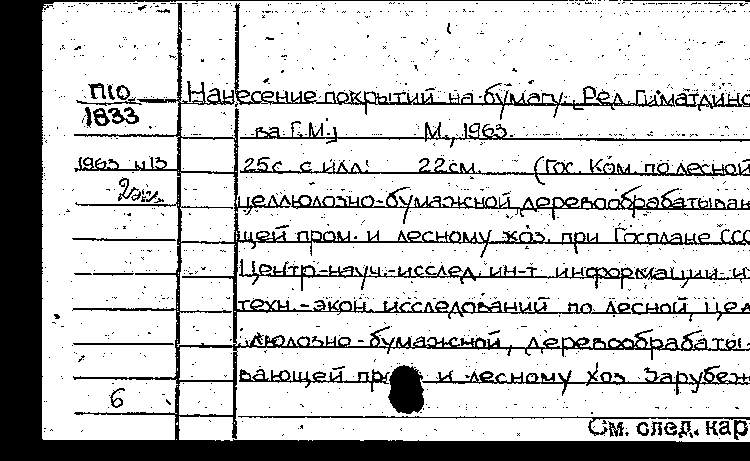 П10
1833
1963 н13
2экз.
6
Нанесение покрытий на бумагу. [Ред. Гиматдино
ва Г.М.] М., 1963.
25с. с илл. 22см. (Гос. Ком. по лесной
целлюлозно-бумажной, деревообрабатываю
щей пром. и лесному хоз. при Госплане ССС
Центр. науч.-исслед. ин-т информации и
техн.-экон. исследований по лесной, цел
люлозно-бумажной, деревообрабаты-
вающей и лесному хоз. Зарубеж
См. след. кар